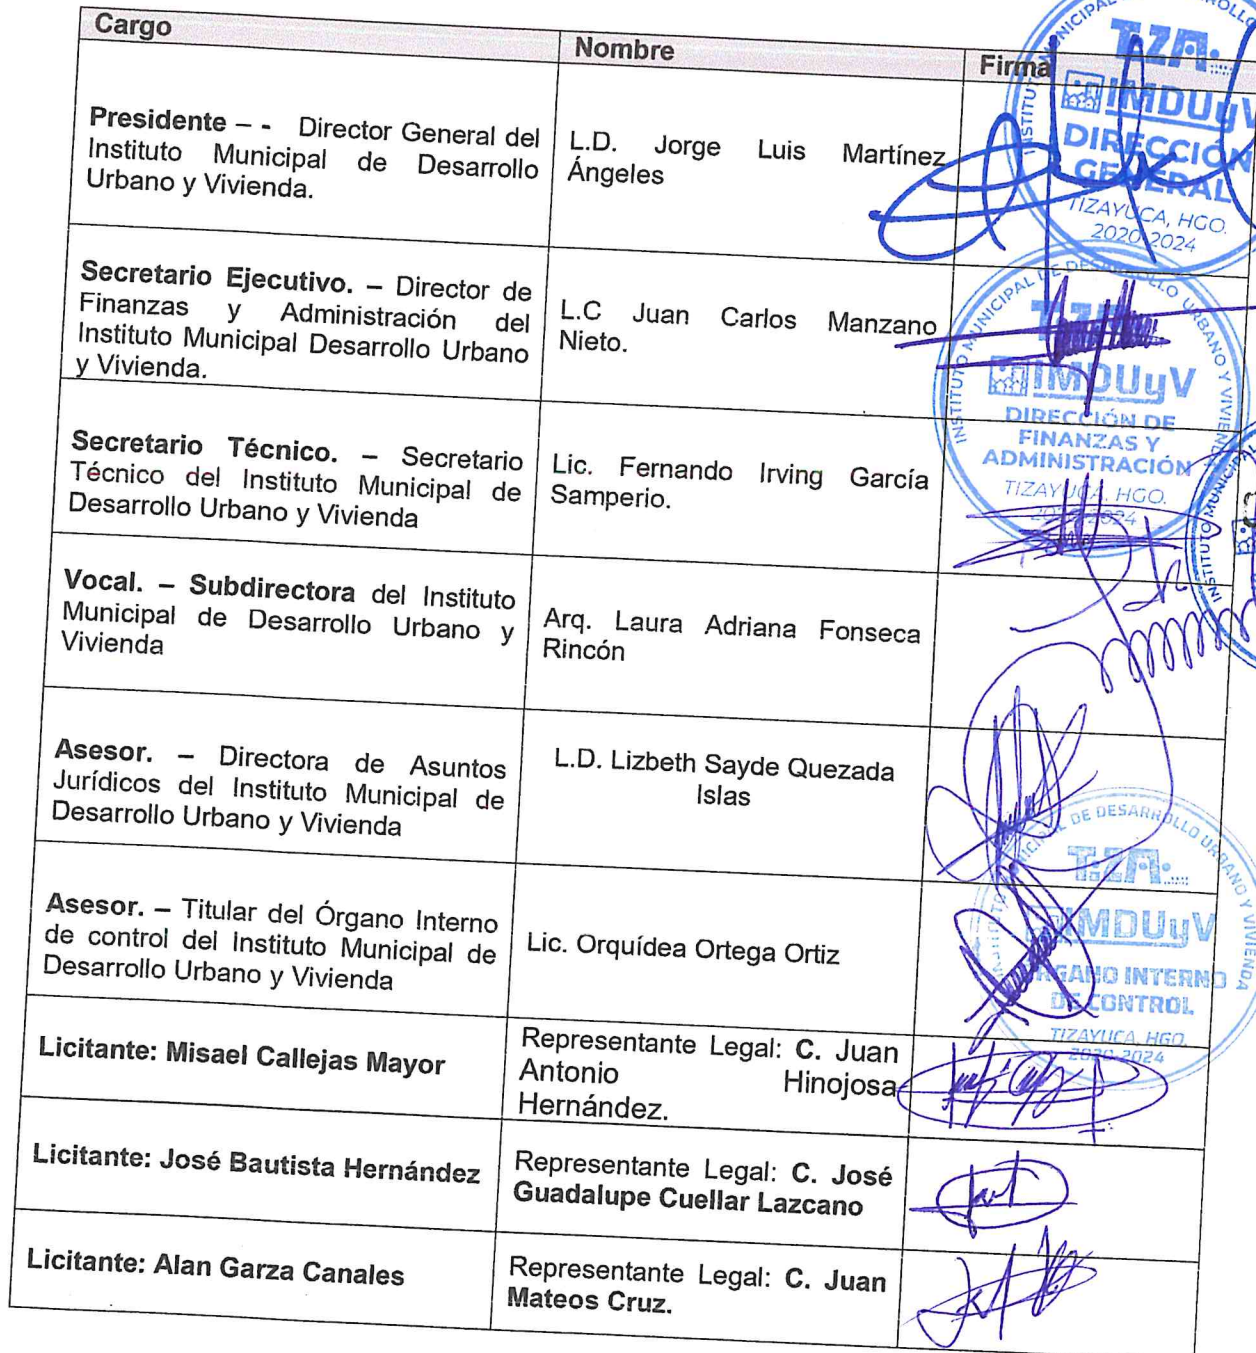 Cargo
Nombre
Firma
Presidente – - Director General del
Instituto Municipal de Desarrollo
Urbano y Vivienda.
L.D. Jorge Luis Martínez
Ángeles
TIZA
IMDUyV
DIRECCIÓN
GENERAL
TIZAYUCA, HGO.
2020-2024
Secretario Ejecutivo. – Director de
Finanzas y Administración del
Instituto Municipal Desarrollo Urbano
y Vivienda.
L.C Juan Carlos Manzano
Nieto.
INSTITUTO MUNICIPAL DE DESARROLLO URBANO Y VIVIENDA
IMDUyV
DIRECCIÓN DE
FINANZAS Y
ADMINISTRACIÓN
TIZAYUCA, HGO.
2020-2024
Secretario Técnico. – Secretario
Técnico del Instituto Municipal de
Desarrollo Urbano y Vivienda
Lic. Fernando Irving García
Samperio.
INSTITUTO MUNICIPAL
Vocal. – Subdirectora del Instituto
Municipal de Desarrollo Urbano y
Vivienda
Arq. Laura Adriana Fonseca
Rincón
Asesor. – Directora de Asuntos
Jurídicos del Instituto Municipal de
Desarrollo Urbano y Vivienda
L.D. Lizbeth Sayde Quezada
Islas
Asesor. – Titular del Órgano Interno
de control del Instituto Municipal de
Desarrollo Urbano y Vivienda
Lic. Orquídea Ortega Ortiz
DE DESARROLLO URBANO Y VIVIENDA
TIZA
IMDUyV
ÓRGANO INTERNO
DE CONTROL
TIZAYUCA, HGO.
2020-2024
Licitante: Misael Callejas Mayor
Representante Legal: C. Juan
Antonio Hinojosa
Hernández.
Licitante: José Bautista Hernández
Representante Legal: C. José
Guadalupe Cuellar Lazcano
Licitante: Alan Garza Canales
Representante Legal: C. Juan
Mateos Cruz.